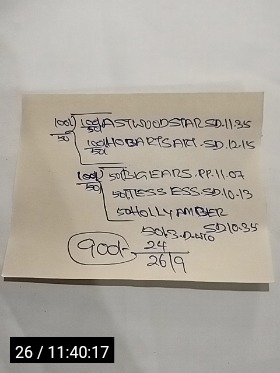 100/50 100/50 EASTWOODSTAR SD.11.35
100/50 HOBARTSART-SD.12.15
100/50 50/BGEARS.PP.11.07
50/TESS ESS.SD.10.13
50/HOLLY AMBER
SD10.35
900/- 24
26/9
26 / 11:40:17